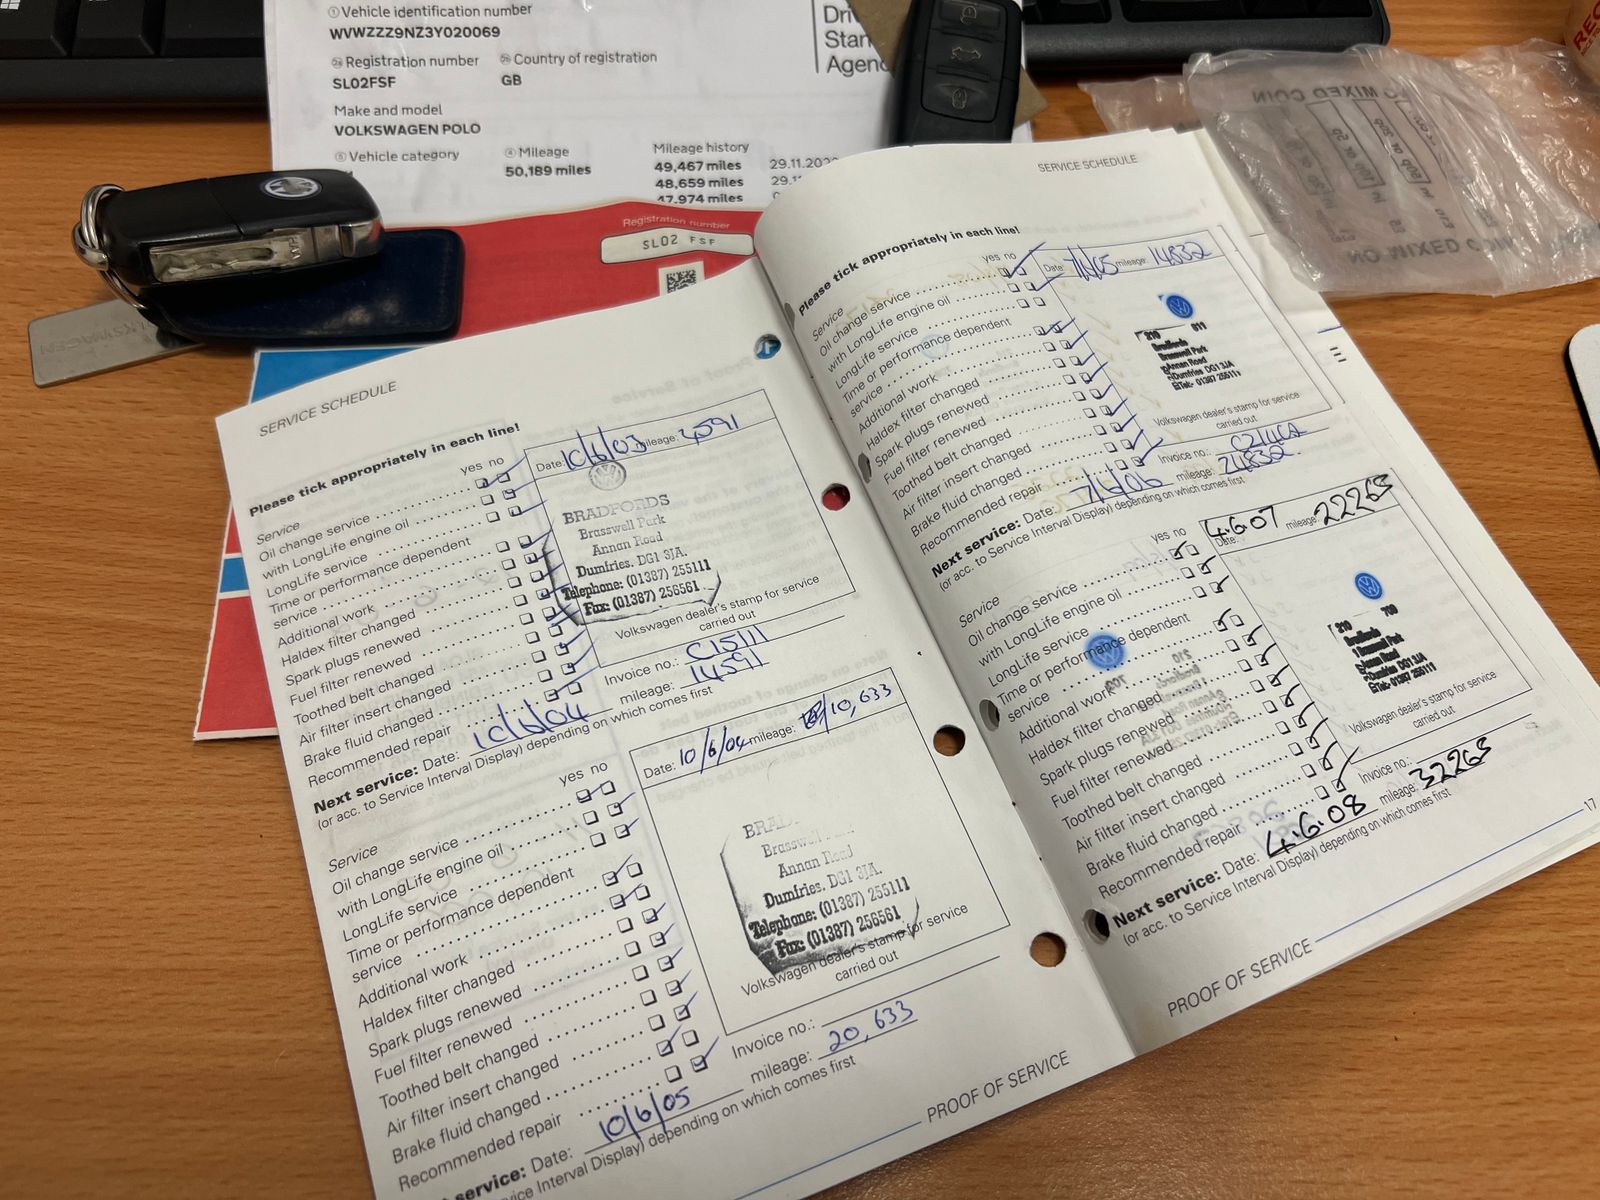 ① Vehicle identification number
WVWZZZ9NZ3Y020069
Registration number
SL02FSF
Country of registration
GB
Make and model
VOLKSWAGEN POLO
Vehicle category
Mileage
50,189 miles
Mileage history
49,467 miles
48,659 miles
47,974 miles
29.11.202
29.1
Registration number
SL02 FSF
NO MIXED COIN
NO MIXED COIN
SERVICE SCHEDULE
Please tick appropriately in each line!
yes no
Service
Oil change service
with LongLife engine oil
LongLife service
Time or performance dependent
service
Additional work
Haldex filter changed
Spark plugs renewed
Fuel filter renewed
Toothed belt changed
Air filter insert changed
Brake fluid changed
Recommended repair
Next service: Date: 10/6/04
(or acc. to Service Interval Display) depending on which comes first
Date: 10/6/03 mileage: 4591
BRADFORDS
Brasswell Park
Annan Road
Dumfries. DG1 3JA.
Telephone: (01387) 255111
Fax: (01387) 256561
Volkswagen dealer's stamp for service
carried out
Invoice no.: C15111
mileage: 14591
yes no
Service
Oil change service
with LongLife engine oil
LongLife service
Time or performance dependent
service
Additional work
Haldex filter changed
Spark plugs renewed
Fuel filter renewed
Toothed belt changed
Air filter insert changed
Brake fluid changed
Recommended repair
service: Date: 10/6/05
vice Interval Display) depending on which comes first
Date: 10/6/04 mileage: 10,633
BRAD
Brasswell
Annan Road
Dumfries. DG1 3JA.
Telephone: (01387) 255111
Fax: (01387) 256561
Volkswagen dealer's stamp for service
carried out
Invoice no.:
mileage: 20,633
PROOF OF SERVICE
SERVICE SCHEDULE
Please tick appropriately in each line!
yes no
Service
Oil change service
with LongLife engine oil
LongLife service
Time or performance dependent
service
Additional work
Haldex filter changed
Spark plugs renewed
Fuel filter renewed
Toothed belt changed
Air filter insert changed
Brake fluid changed
Recommended repair
Next service: Date: 7/6/06
(or acc. to Service Interval Display) depending on which comes first
Date: 7/6/05 mileage: 14832
210 011
Bradfords
Brasswell Park
Annan Road
Dumfries DG1 3JA
Tel:- 01387 255111
Volkswagen dealer's stamp for service
carried out
Invoice no.:
mileage: 24832
yes no
Service
Oil change service
with LongLife engine oil
LongLife service
Time or performance dependent
service
Additional work
Haldex filter changed
Spark plugs renewed
Fuel filter renewed
Toothed belt changed
Air filter insert changed
Brake fluid changed
Recommended repair
Next service: Date: 4.6.08
(or acc. to Service Interval Display) depending on which comes first
Date: 4.6.07 mileage: 22265
210 700
Bradfords
Annan Road
Dumfries DG1 3JA
Tel:- 01387 255111
Volkswagen dealer's stamp for service
carried out
Invoice no.:
mileage: 32265
17
PROOF OF SERVICE